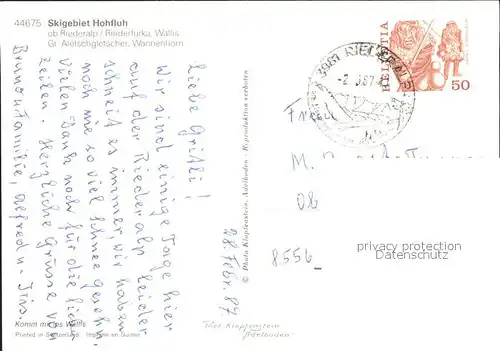 44675 Skigebiet Hohfluh
ob Riederalp / Riederfurka, Wallis
Gr. Aletschgletscher, Wannenhorn
Liebe Gritli!
Wir sind einige Tage hier
auf der Riederalp. Leider
schneit es immer, wir haben
noch nie so viel Schnee gesehen.
Vielen Dank noch für die lieben
Zeilen. Herzliche Grüsse von
Bruno u. Familie, Alfred u. Iris.
28. Febr. 87
Kommt mit ins Wallis
Printed in Switzerland Imprimé en Suisse
© Photo Klopfenstein, Adelboden - Reproduktion verboten
Photo Klopfenstein
Adelboden
3981 RIEDERALP
-2.3.87
HELVETIA
50
M.
8556
privacy protection
AnsichtskartenVersand.com